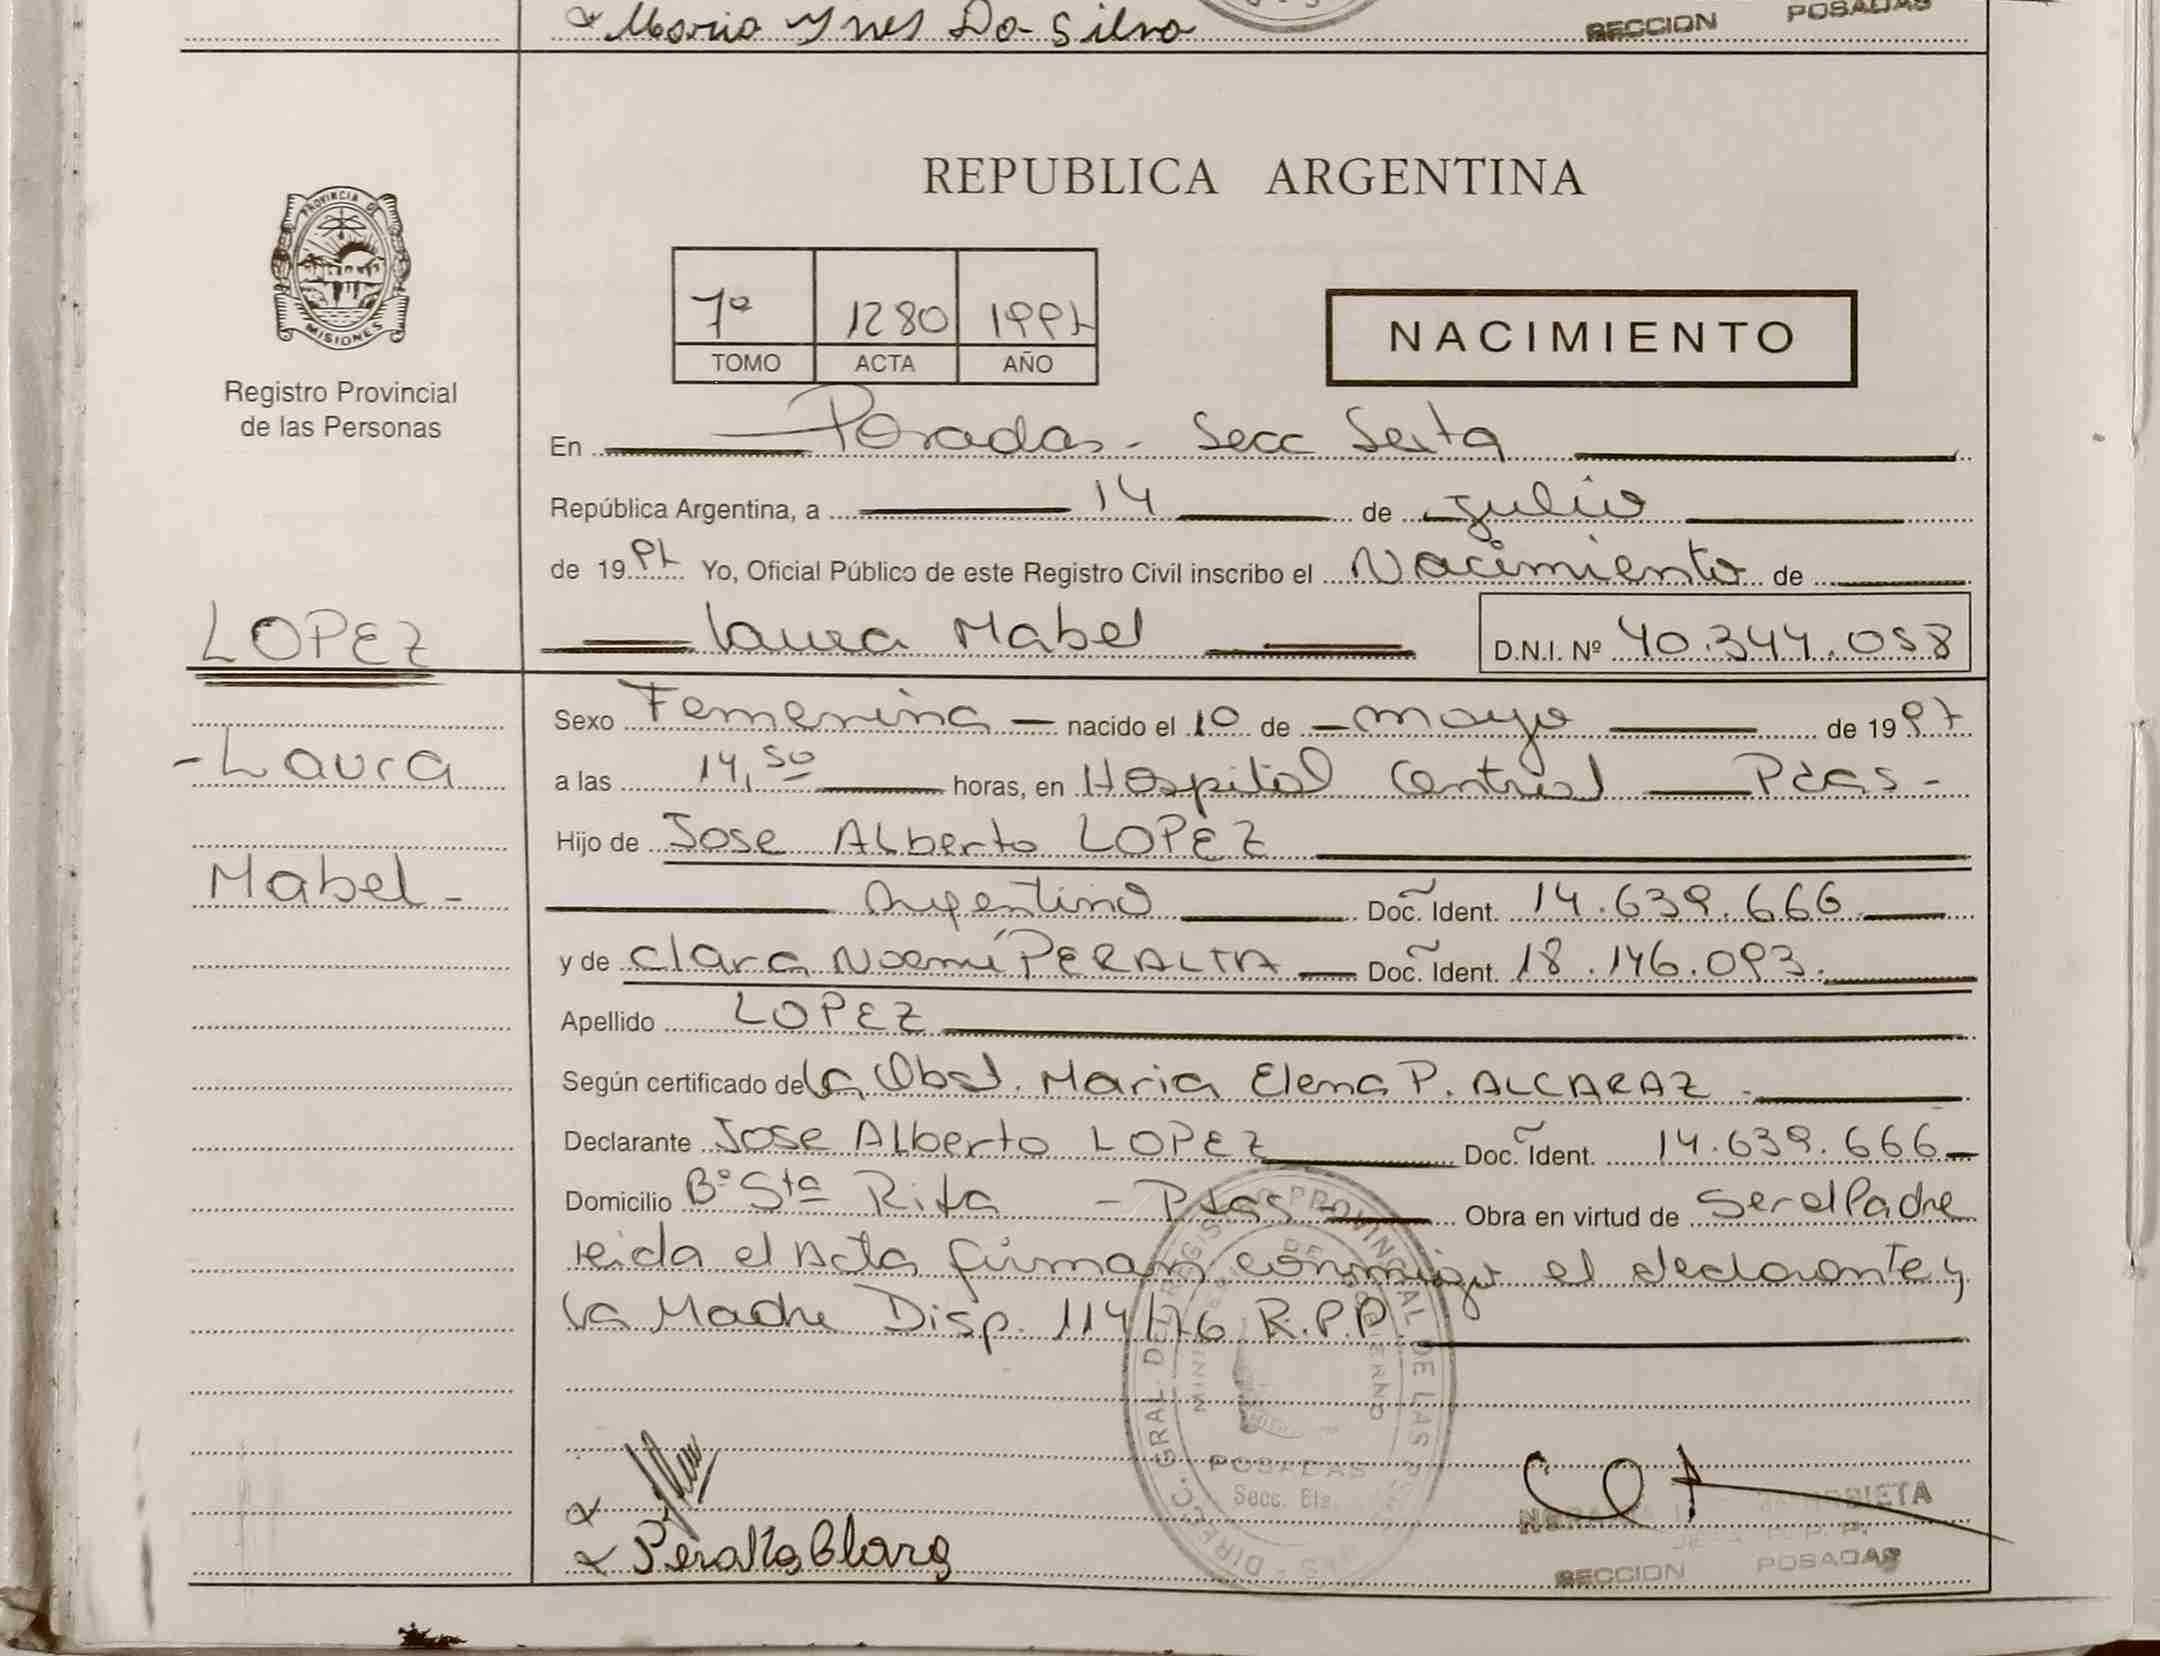 Maria Ynes Da Silva
SECCION POSADAS
PROVINCIA DE
MISIONES
Registro Provincial
de las Personas
REPUBLICA ARGENTINA
7º 1280 1997
TOMO ACTA AÑO
NACIMIENTO
En Posadas - Secc Sexta
República Argentina, a 14 de julio
de 1997 Yo, Oficial Público de este Registro Civil inscribo el Nacimiento de
LOPEZ
Laura Mabel D.N.I. Nº 40.344.058
Sexo Femenina nacido el 10 de mayo de 1997
- Laura
a las 14,50 horas, en Hospital Central Pdas -
Hijo de Jose Alberto LOPEZ
Mabel -
Argentino Doc. Ident. 14.639.666
y de Clara Noemí PERALTA Doc. Ident. 18.146.093.
Apellido LOPEZ
Según certificado de la Obst. Maria Elena P. ALCARAZ
Declarante Jose Alberto LOPEZ Doc. Ident. 14.639.666
Domicilio Bº Sta Rita - Pdas - Obra en virtud de Ser el Padre
leida el Acta firman conmigo el declarante y
la Madre Disp. 114/76 R.P.P.
DIRECC. GRAL. DEL REGISTRO PROVINCIAL DE LAS
DE GOBIERNO
POSADAS
Secc.
Peralta Clara
SECCION POSADAS